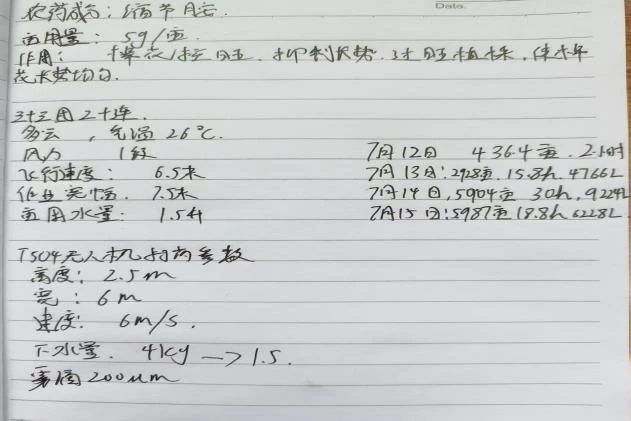 Date.
农药成分：缩节胺.
亩用量：5g/亩.
作用：棉花控旺.抑制长势.过旺植株,使棉
花长势均匀.
三十三团2十连.
多云 ,气温26℃.
风力 1级 7月12日 4364亩.2.1小时
飞行速度: 6.5米 7月13日:2928亩.15.8h.4766L
作业宽幅. 7.5米 7月14日,5904亩 30h,9224L
亩用水量: 1.5升 7月15日:5987亩18.8h 6228L
T504无人机打药参数
高度：2.5m
宽：6m
速度: 6m/s.
下水量. 4kg → 1.5.
雾滴200μm